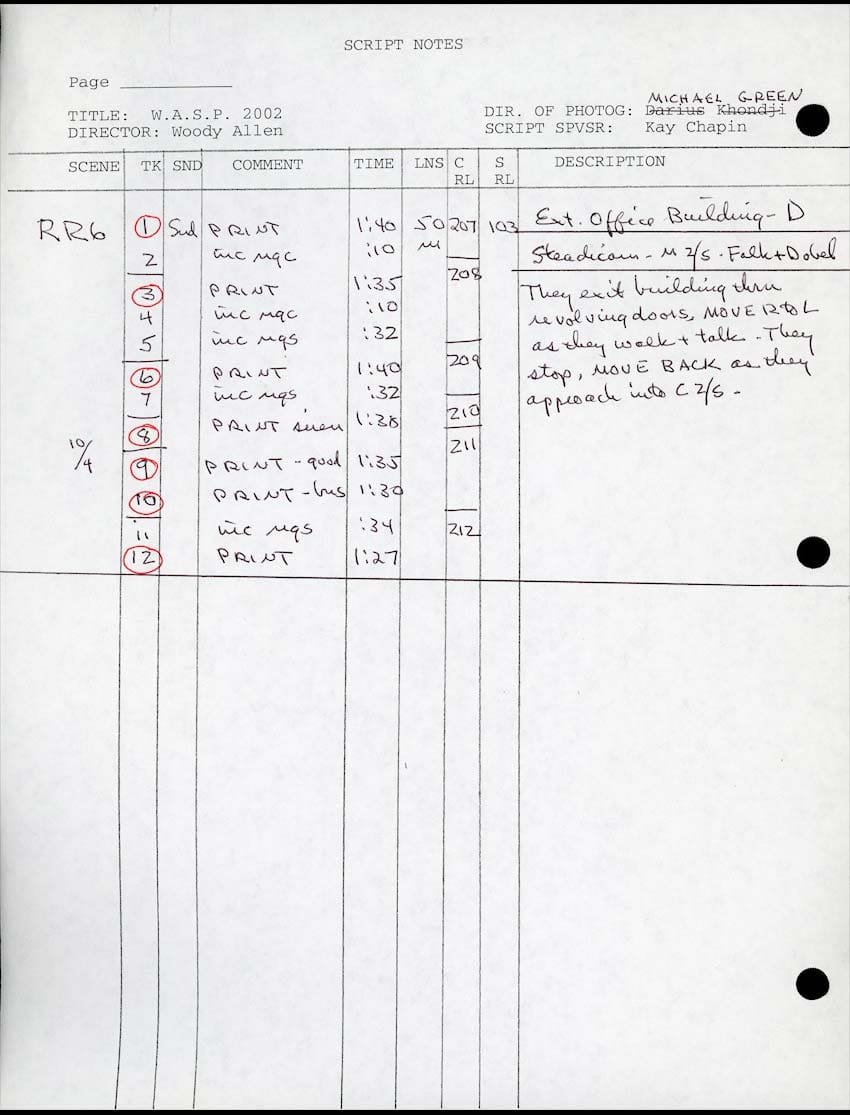 SCRIPT NOTES
Page
MICHAEL GREEN
TITLE: W.A.S.P. 2002 DIR. OF PHOTOG: Darius Khondji
DIRECTOR: Woody Allen SCRIPT SPVSR: Kay Chapin
SCENE TK SND COMMENT TIME LNS C RL S RL DESCRIPTION
RR6 1 Snd PRINT 1:40 50 207 103 Ext. Office Building - D
2 inc ngc :10 M Steadicam - M 2/S - Falk + Dobel
3 PRINT 1:35 208 They exit building thru
4 inc ngc :10 revolving doors, MOVE R to L
5 inc ngs :32 as they walk + talk. They
6 PRINT 1:40 209 stop, MOVE BACK as they
7 inc ngs :32 approach into C 2/S -
8 PRINT siren 1:38 210
10/4 9 PRINT - good 1:35 211
10 PRINT - bus 1:30
11 inc ngs :34 212
12 PRINT 1:27